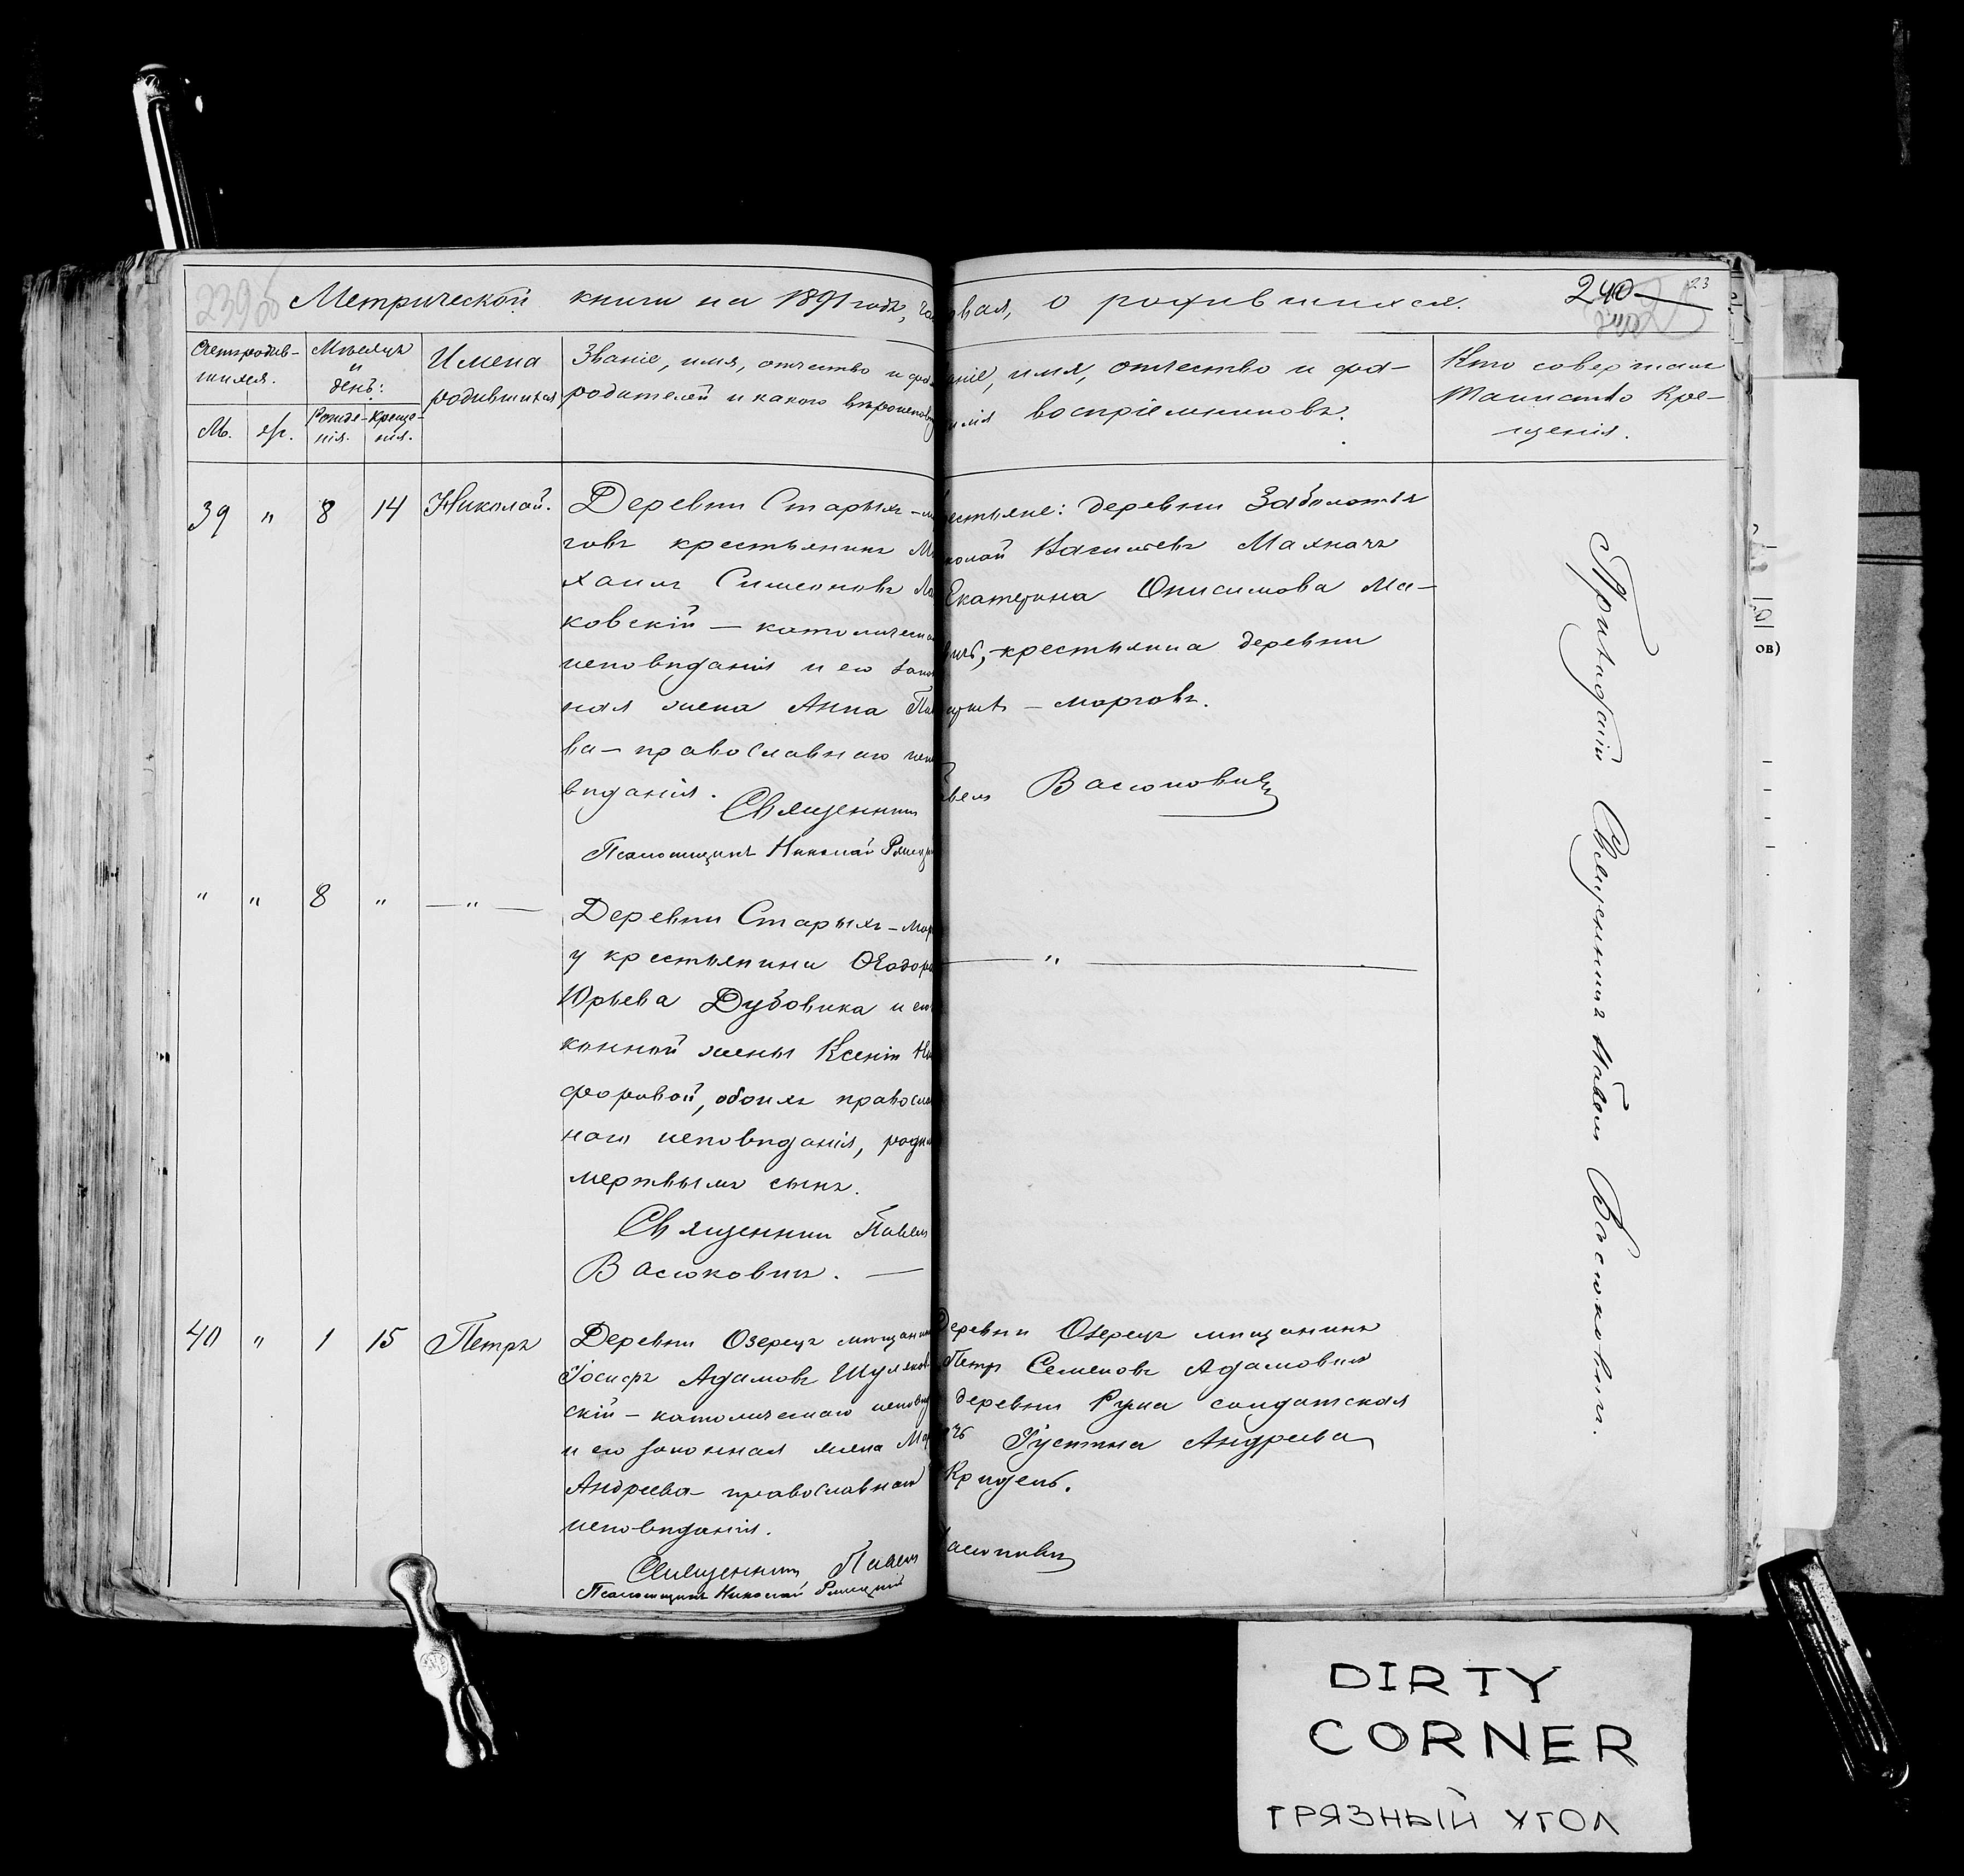 Метрической книги на 1891 годъ,
вая, о родившихся.
240
23
Счетъ родив-
шихся.
М.
Мѣсяцъ
и
день:
Рожде-
нія.
Креще-
нія.
Имена
родившихся
Званіе, имя, отчество и фа
родителей и какого вѣроисповѣд
аніе, имя, отчество и фа-
милія воспріемниковъ.
Кто совершалъ
таинство Кре-
щенія.
39 " 8 14 Николай.
Деревни Старыхъ-м
говъ крестьянинъ М
хаилъ Симеоновъ
ковскій — католическа
исповѣданія и его зако
ная жена Анна Па
ва — православнаго испо
вѣданія.
Священникъ
Псаломщикъ Николай
естьяне: деревни Заболотья
колай Васильевъ Махначъ
Екатерина Онисимова Ма-
вичъ, крестьянка деревни
- морговъ.
авелъ Васюковичъ
" " 8 " — " —
Деревни Старыхъ-мор
у крестьянина Ѳеодора
Юрьева Дубовика и его
конной жены Ксеніи Ни
форовой, обоихъ правосла
наго исповѣданія, роди
мертвымъ сынъ.
Священникъ Павелъ
Васюковичъ. —
— " —
40 " 1 15 Петръ
Деревни Озерецъ мѣщанинъ
Іосифъ Адамовъ Шуляков
скій — католическаго исповѣд
и его законная жена Ма
Андреева — православнаго
исповѣданія.
Священникъ Павелъ
Псаломщикъ Николай
Деревни Озерецъ мѣщанинъ
Петръ Семеновъ Адамовичъ
деревни солдатская
Іустина Андреева
васюковичъ
Приходскій Священникъ Павелъ Васюковичъ.
ов)
DIRTY
CORNER
ГРЯЗНЫЙ УГОЛ